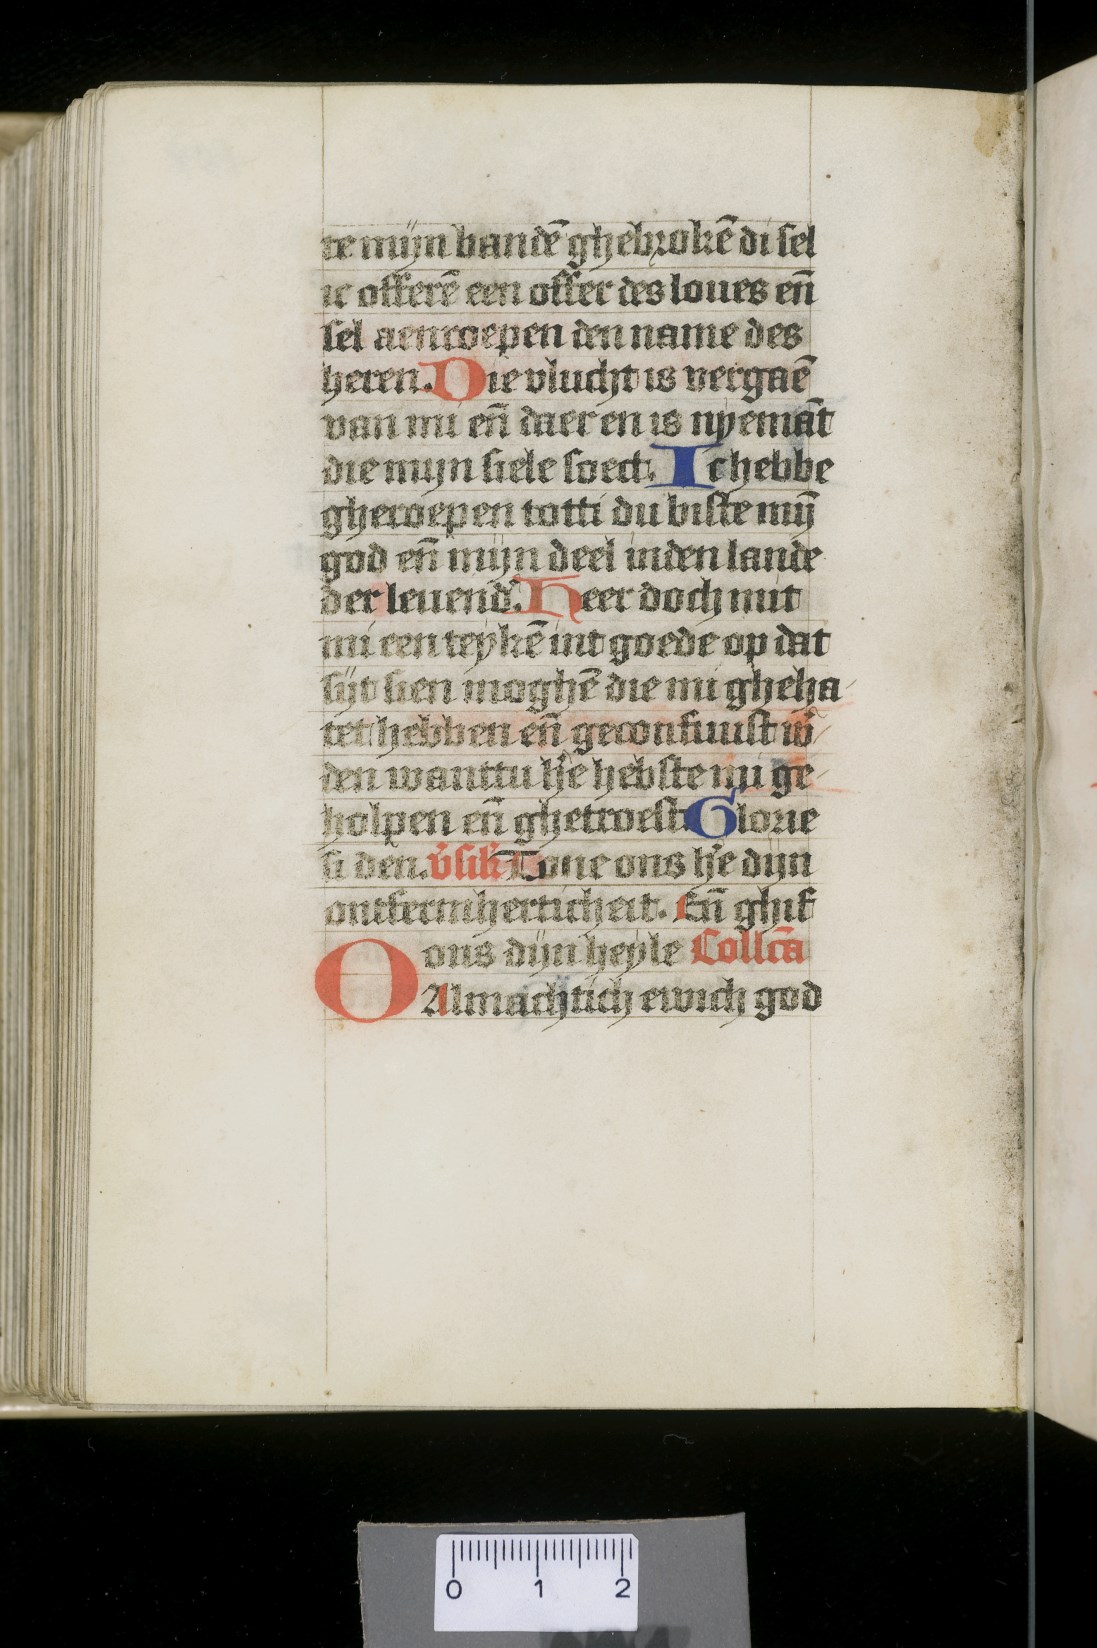 te mijn bandē ghebrokē di sel
ic offerē een offer des loues eñ
sel aenroepen den name des
heren. Die vlucht is vergaē
van mi eñ daer en is nyemāt
die mijn siele soect. Ic hebbe
gheroepen totti du biste mij̄
god eñ mijn deel inden lande
der leuend'. Heer doch mit
mi een teykē int goede op dat
sijt sien moghē die mi gheha-
tet hebben eñ geconfuust w'-
den wanttu h'e hebste mi ge-
holpen eñ ghetroest. Glorie
si den. v'sik' Tone ons h'e dijn
ontfermherticheit. Eñ ghif
ons dijn heyle Collcā
O Almachtich ewich god
0 1 2